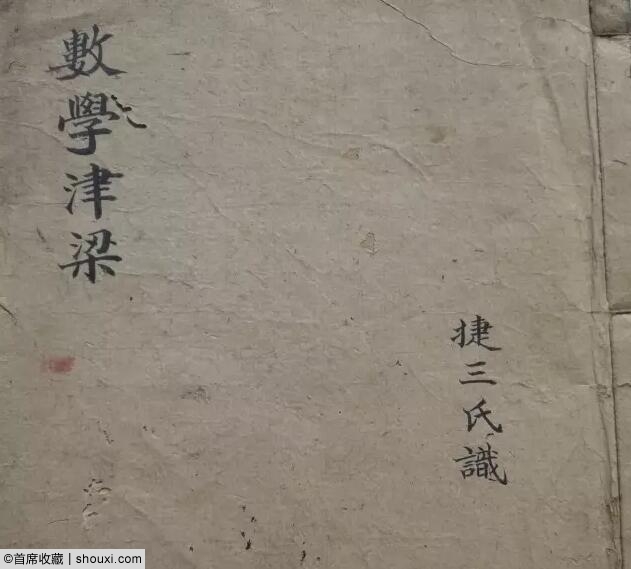 數學津梁
捷三氏識
©首席收藏 | shouxi.com